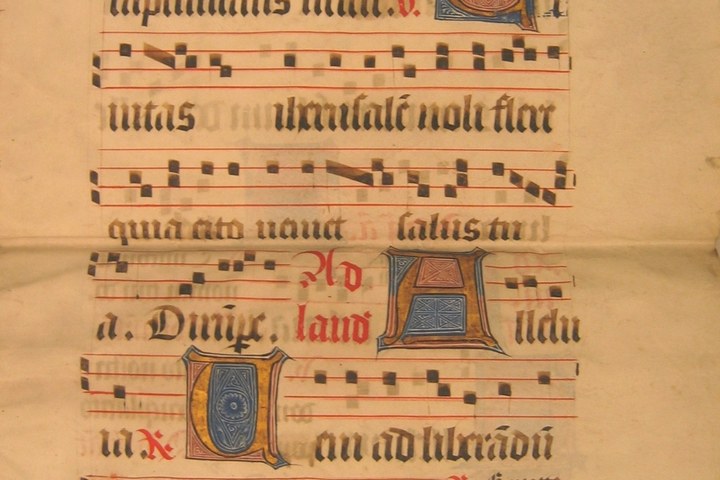 V.
uitas iherusalē noli flere
quia cito ueniet salus tu
a. Ad laud Allelu
ia ℟ Ueni ad liberādū